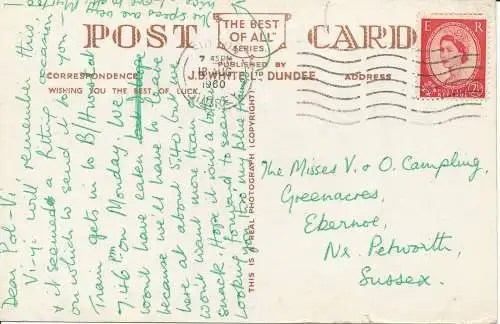 POST CARD
THE BEST
OF ALL
SERIES
CORRESPONDENCE
PUBLISHED BY
J.B.WHITE LTD DUNDEE.
ADDRESS
WISHING YOU THE BEST OF LUCK.
7 45PM
1960
E R
THIS IS A REAL PHOTOGRAPH (COPYRIGHT)
Dear Pol-Vi
Vi-yi will remember this
& it seemed a fitting occasion
on which to send it to you.
Train gets in to B/Hurst at
7.46pm on Monday. We
wont have eaten
because we'll have to leave
here at about 5.40, but we
wont want more than a
snack. Hope it isn't a bother
Looking forward to seeing
you
The Misses V & O Campling,
Greenacres,
Ebernoe,
Nr. Petworth,
Sussex.